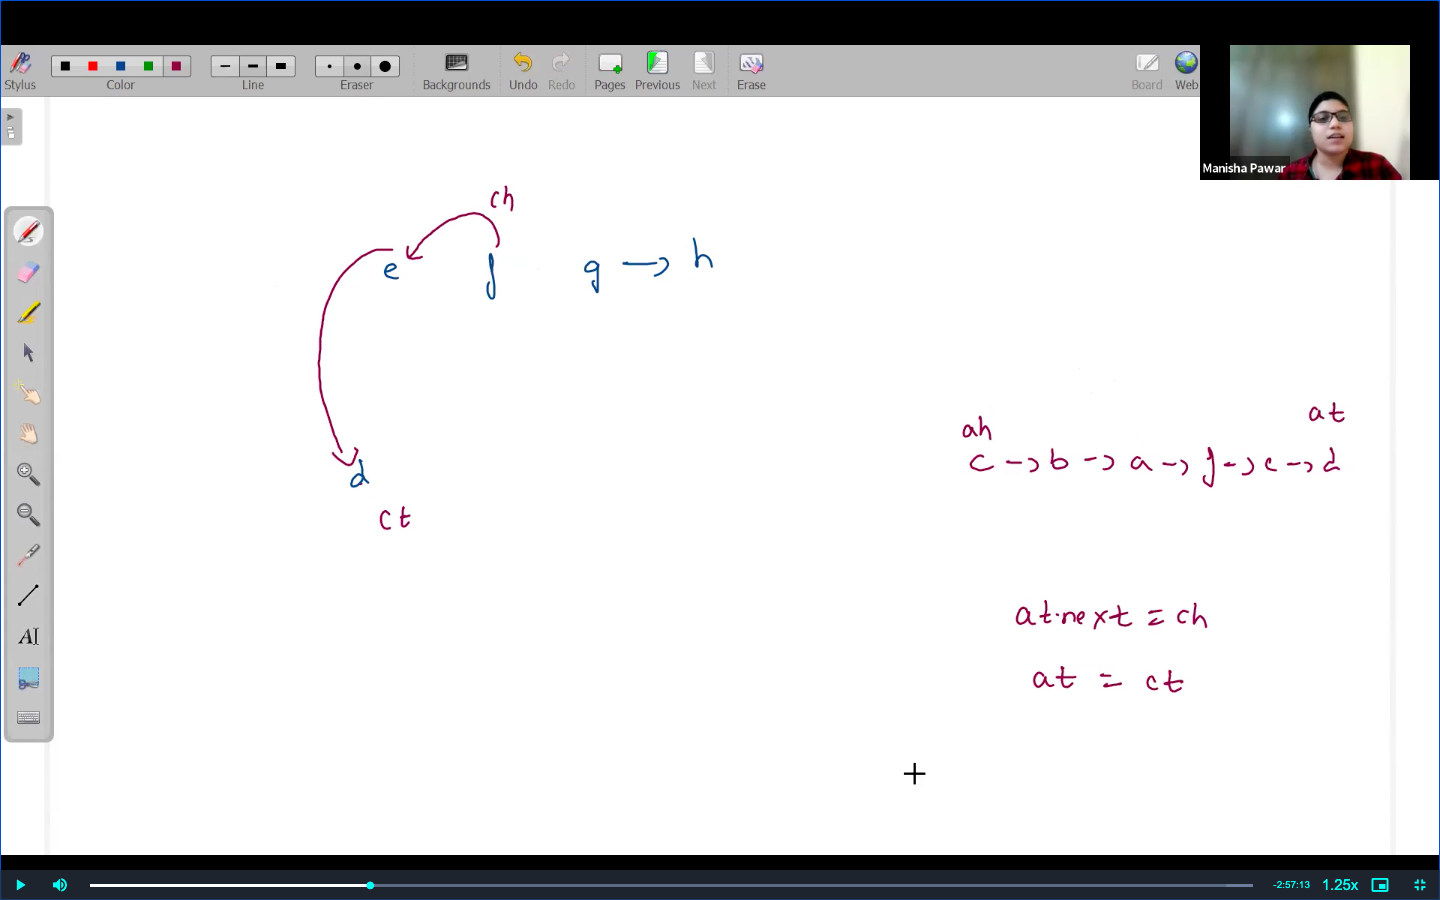 Stylus
Color
Line
Eraser
Backgrounds
Undo
Redo
Pages
Previous
Next
Erase
Board
Web
Manisha Pawar
ch
e f g → h
ah at
c → b → a → f → e → d
d
ct
at.next = ch
at = ct
AI
-2:57:13
1.25x